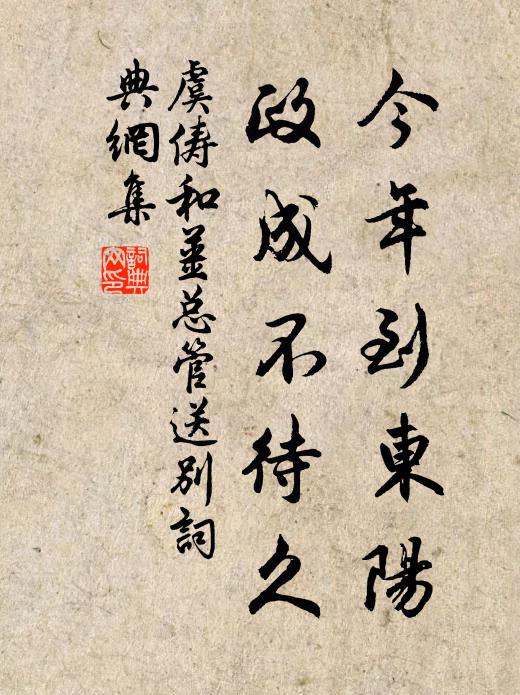 今年到東陽
政成不待久
虞俦和姜总管送别詞
典網集
詞典
网印